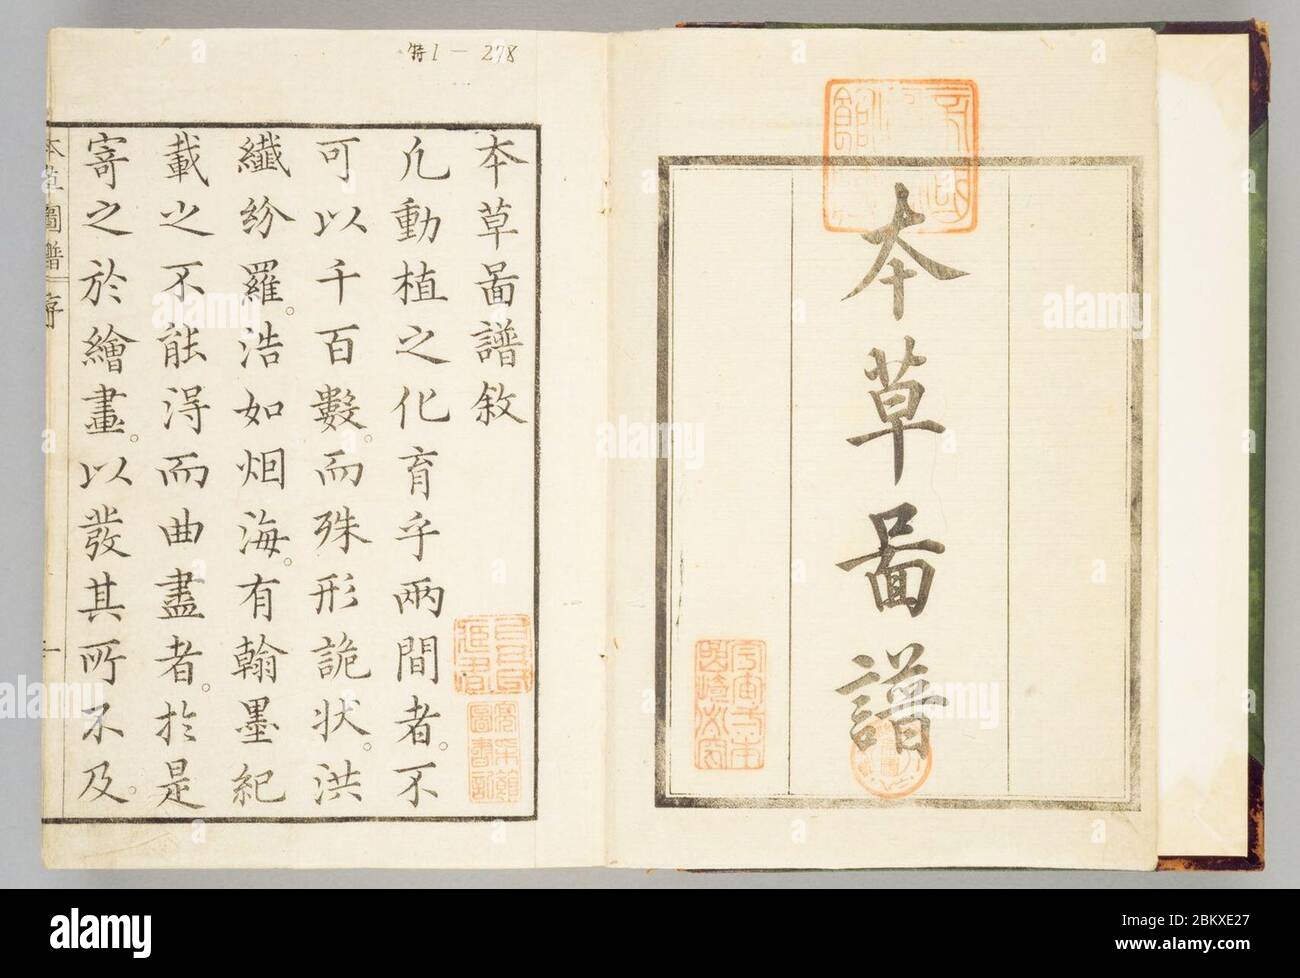 本草啚譜
特1-278
本草啚譜敘
凢動植之化育乎兩間者。不
可以千百數。而殊形詭狀。洪
纎紛羅。浩如烟海。有翰墨紀
載之不能淂而曲盡者。於是
寄之於繪畫。以發其所不及。
本草圖譜 序 一
alamy
Image ID: 2BRXE27
www.alamy.com